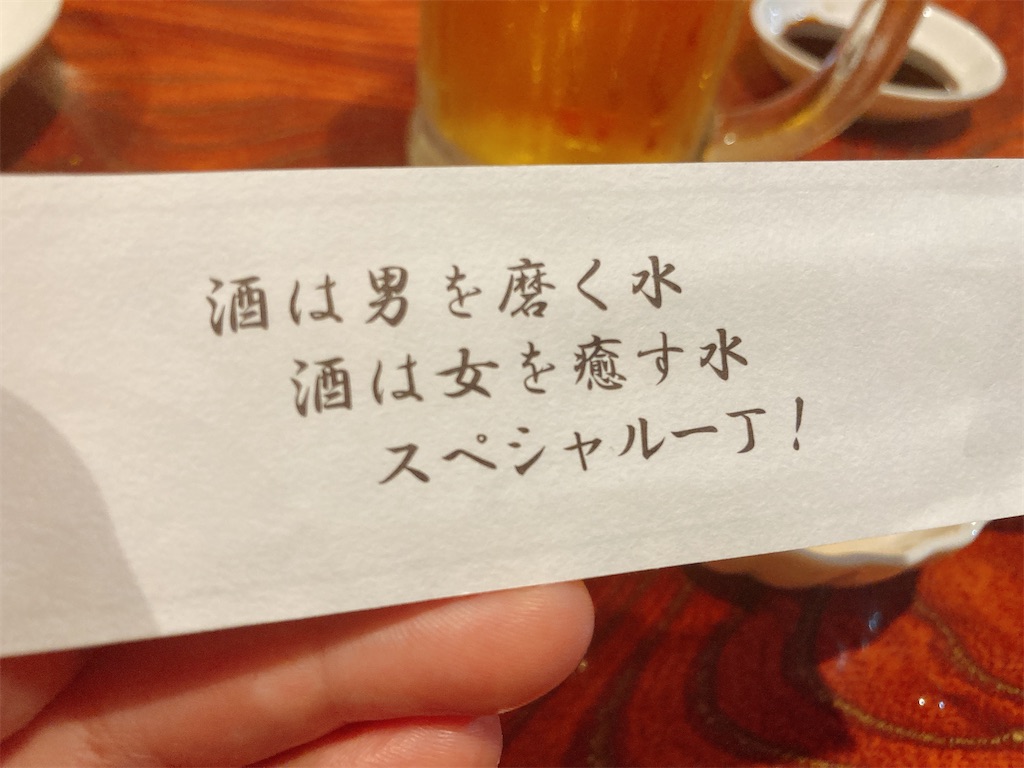 酒は男を磨く水
酒は女を癒す水
スペシャル一丁！